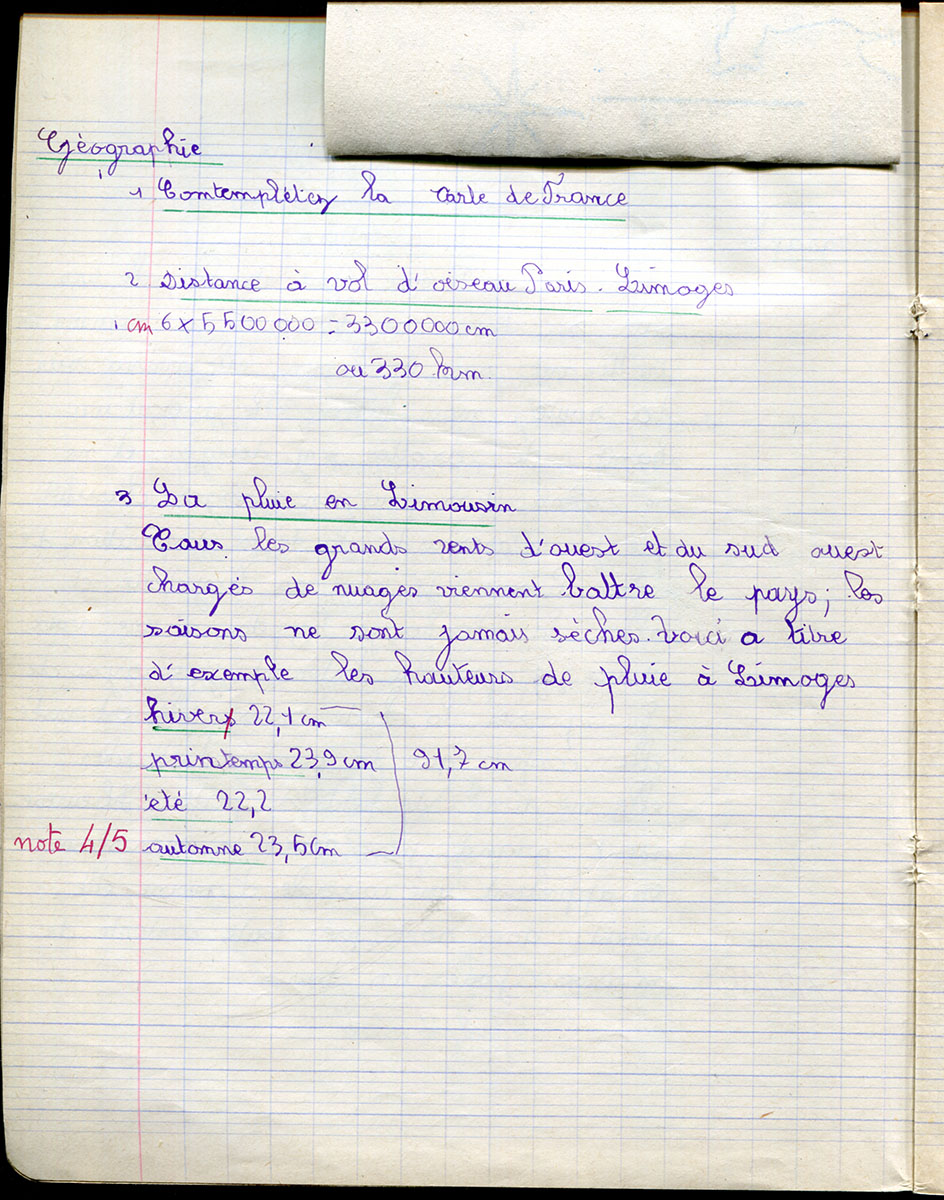 Géographie
1 Contempléter la carte de France
2 Distance à vol d'oiseau Paris-Limoges
cm 6 x 5500000 = 3300000cm
ou 330 km.
3 La pluie en Limousin
Tous les grands vents d'ouest et du sud ouest
chargés de nuages viennent battre le pays; les
saisons ne sont jamais sèches. Voici a titre
d'exemple les hauteurs de pluie à Limoges
hiver 22,1 cm
printemps 23,9 cm 91,7 cm
été 22,2
note 4/5 automne 23,5cm